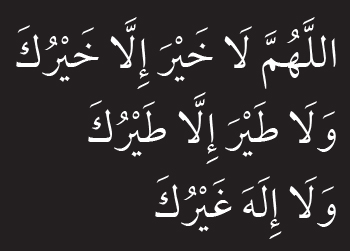 اللَّهُمَّ لَا خَيْرَ إِلَّا خَيْرُكَ
وَلَا طَيْرَ إِلَّا طَيْرُكَ
وَلَا إِلَهَ غَيْرُكَ